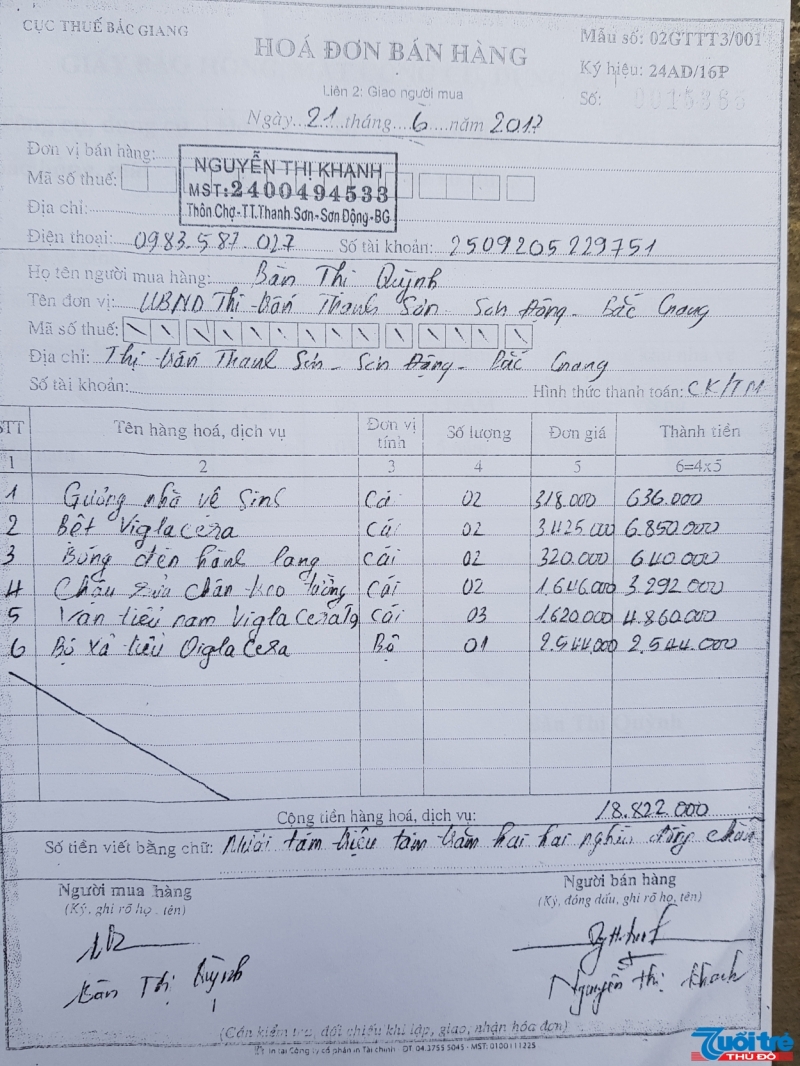 CỤC THUẾ BẮC GIANG
HOÁ ĐƠN BÁN HÀNG
Liên 2: Giao người mua
Ngày 21 tháng 6 năm 2017
Mẫu số: 02GTTT3/001
Ký hiệu: 24AD/16P
Số: 0015365
Đơn vị bán hàng:
Mã số thuế:
Địa chỉ:
NGUYỄN THỊ KHANH
MST: 2400494533
Thôn Chợ-TT.Thanh Sơn-Sơn Động-BG
Điện thoại: 0983.587.027 Số tài khoản: 2509205229751
Họ tên người mua hàng: Bàn Thị Quỳnh
Tên đơn vị: UBND Thị trấn Thanh Sơn - Sơn Động - Bắc Giang
Mã số thuế:
Địa chỉ: Thị trấn Thanh Sơn - Sơn Động - Bắc Giang
Số tài khoản: Hình thức thanh toán: CK/TM
STT Tên hàng hoá, dịch vụ Đơn vị tính Số lượng Đơn giá Thành tiền
1 2 3 4 5 6=4x5
1 Gương nhà vệ sinh Cái 02 318.000 636.000
2 Bệt Viglacera Cái 02 3.425.000 6.850.000
3 Bóng đèn hành lang Cái 02 320.000 640.000
4 Chậu rửa chân treo tường Cái 02 1.646.000 3.292.000
5 Van tiểu nam Viglacera Cái 03 1.620.000 4.860.000
6 Bộ xả tiểu Viglacera Bộ 01 2.544.000 2.544.000
Cộng tiền hàng hoá, dịch vụ: 18.822.000
Số tiền viết bằng chữ: Mười tám triệu tám trăm hai hai nghìn đồng chẵn
Người mua hàng
(Ký, ghi rõ họ, tên)
Bàn Thị Quỳnh
Người bán hàng
(Ký, đóng dấu, ghi rõ họ, tên)
Nguyễn Thị Khanh
(Cần kiểm tra, đối chiếu khi lập, giao, nhận hóa đơn)
In tại Công ty cổ phần in Tài chính ĐT: 04.3755 5045 - MST: 0100111225
Tuổi trẻ
THỦ ĐÔ